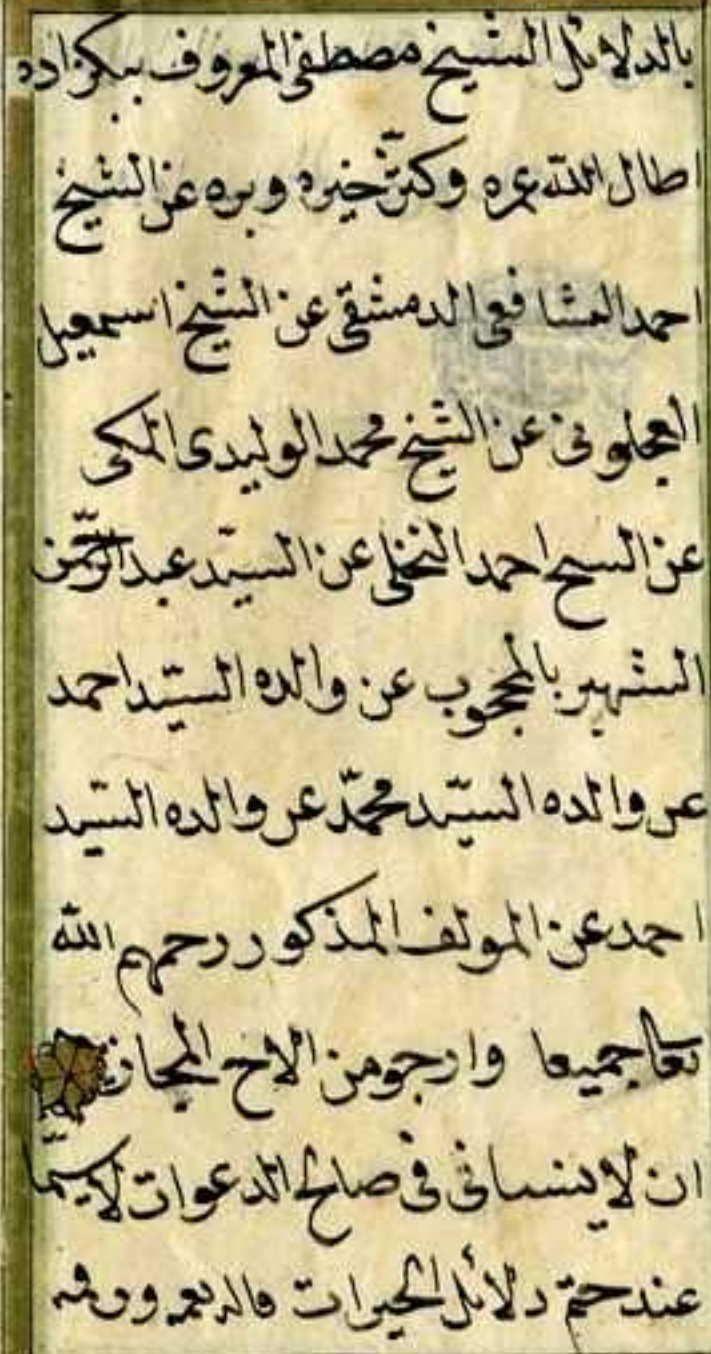 بالدلائل الشيخ مصطفى المعروف ببكزاده
اطال الله عمره وكثّر خيره وبره عن الشيخ
احمد الشافعى الدمشقى عن الشيخ اسمعيل
العجلونى عن الشيخ محمد الوليدى المكى
عن الشيخ احمد النخلى عن السيّد عبد الرّحمن
الشهير بالمحجوب عن والده السيّد احمد
عن والده السيّد محمّد عن والده السيّد
احمد عن المولف المذكور رحمهم الله
تعا جميعا وارجو من الاخ المجاز
ان لا ينسانى فى صالح الدعوات لا سيّما
عند ختم دلائل الخيرات